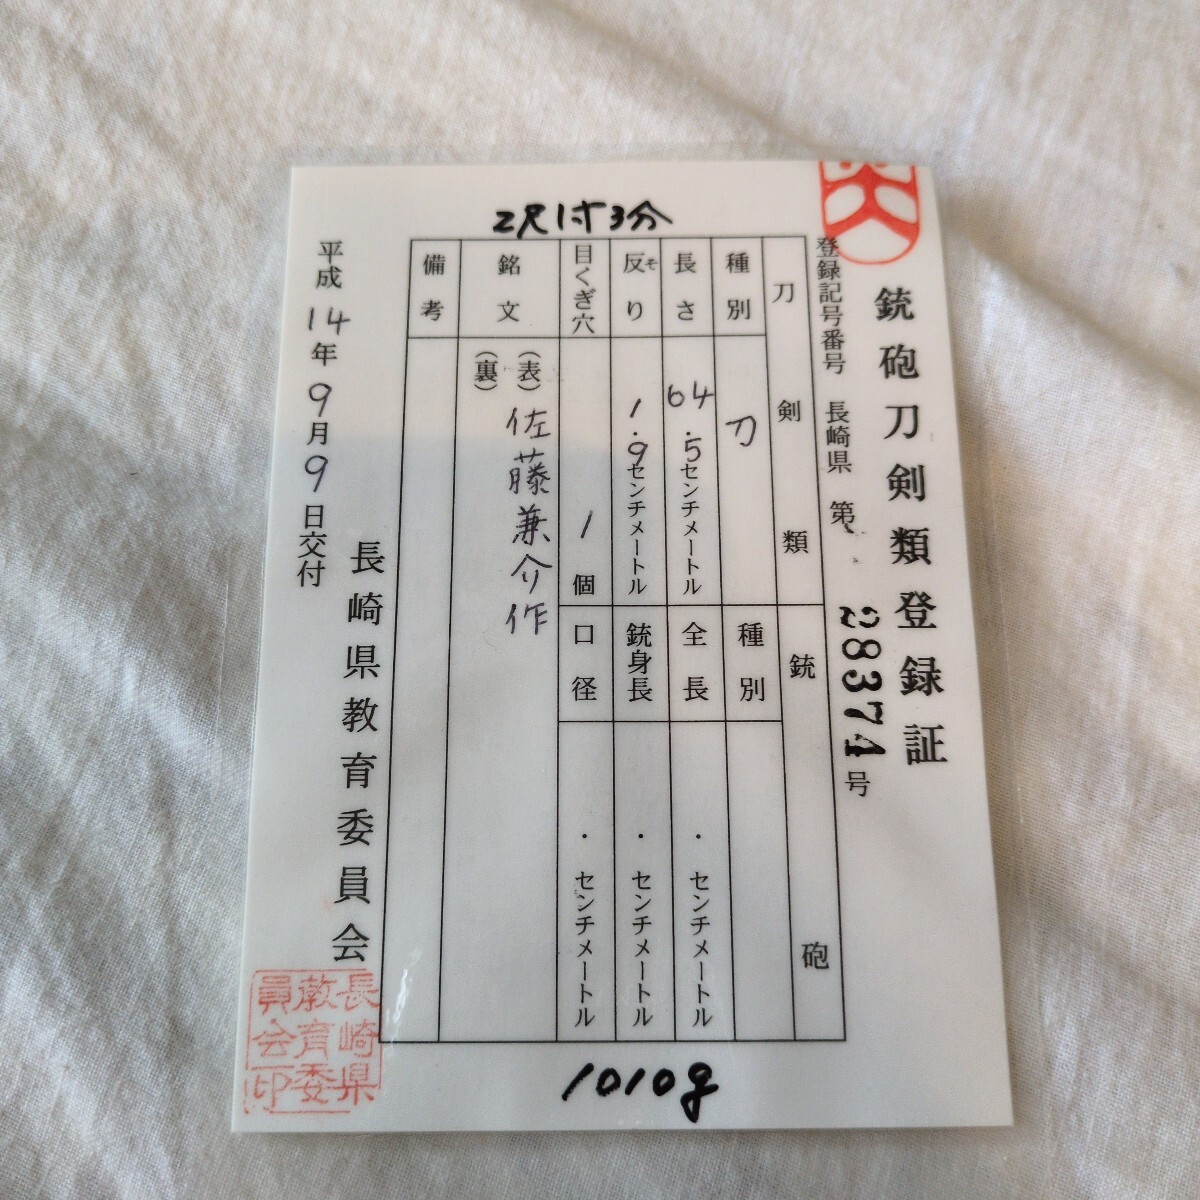 2尺1寸3分
銃砲刀剣類登録証
登録記号番号 長崎県 第 28374 号
刀剣類
銃砲
種別
刀
種別
長さ
64.5センチメートル
全長
・センチメートル
反り
そ
1.9センチメートル
銃身長
・センチメートル
目くぎ穴
1個
口径
・センチメートル
銘文
(表) 佐藤兼介作
(裏)
備考
平成14年9月9日交付
長崎県教育委員会
長崎県
教育委
員会印
1010g